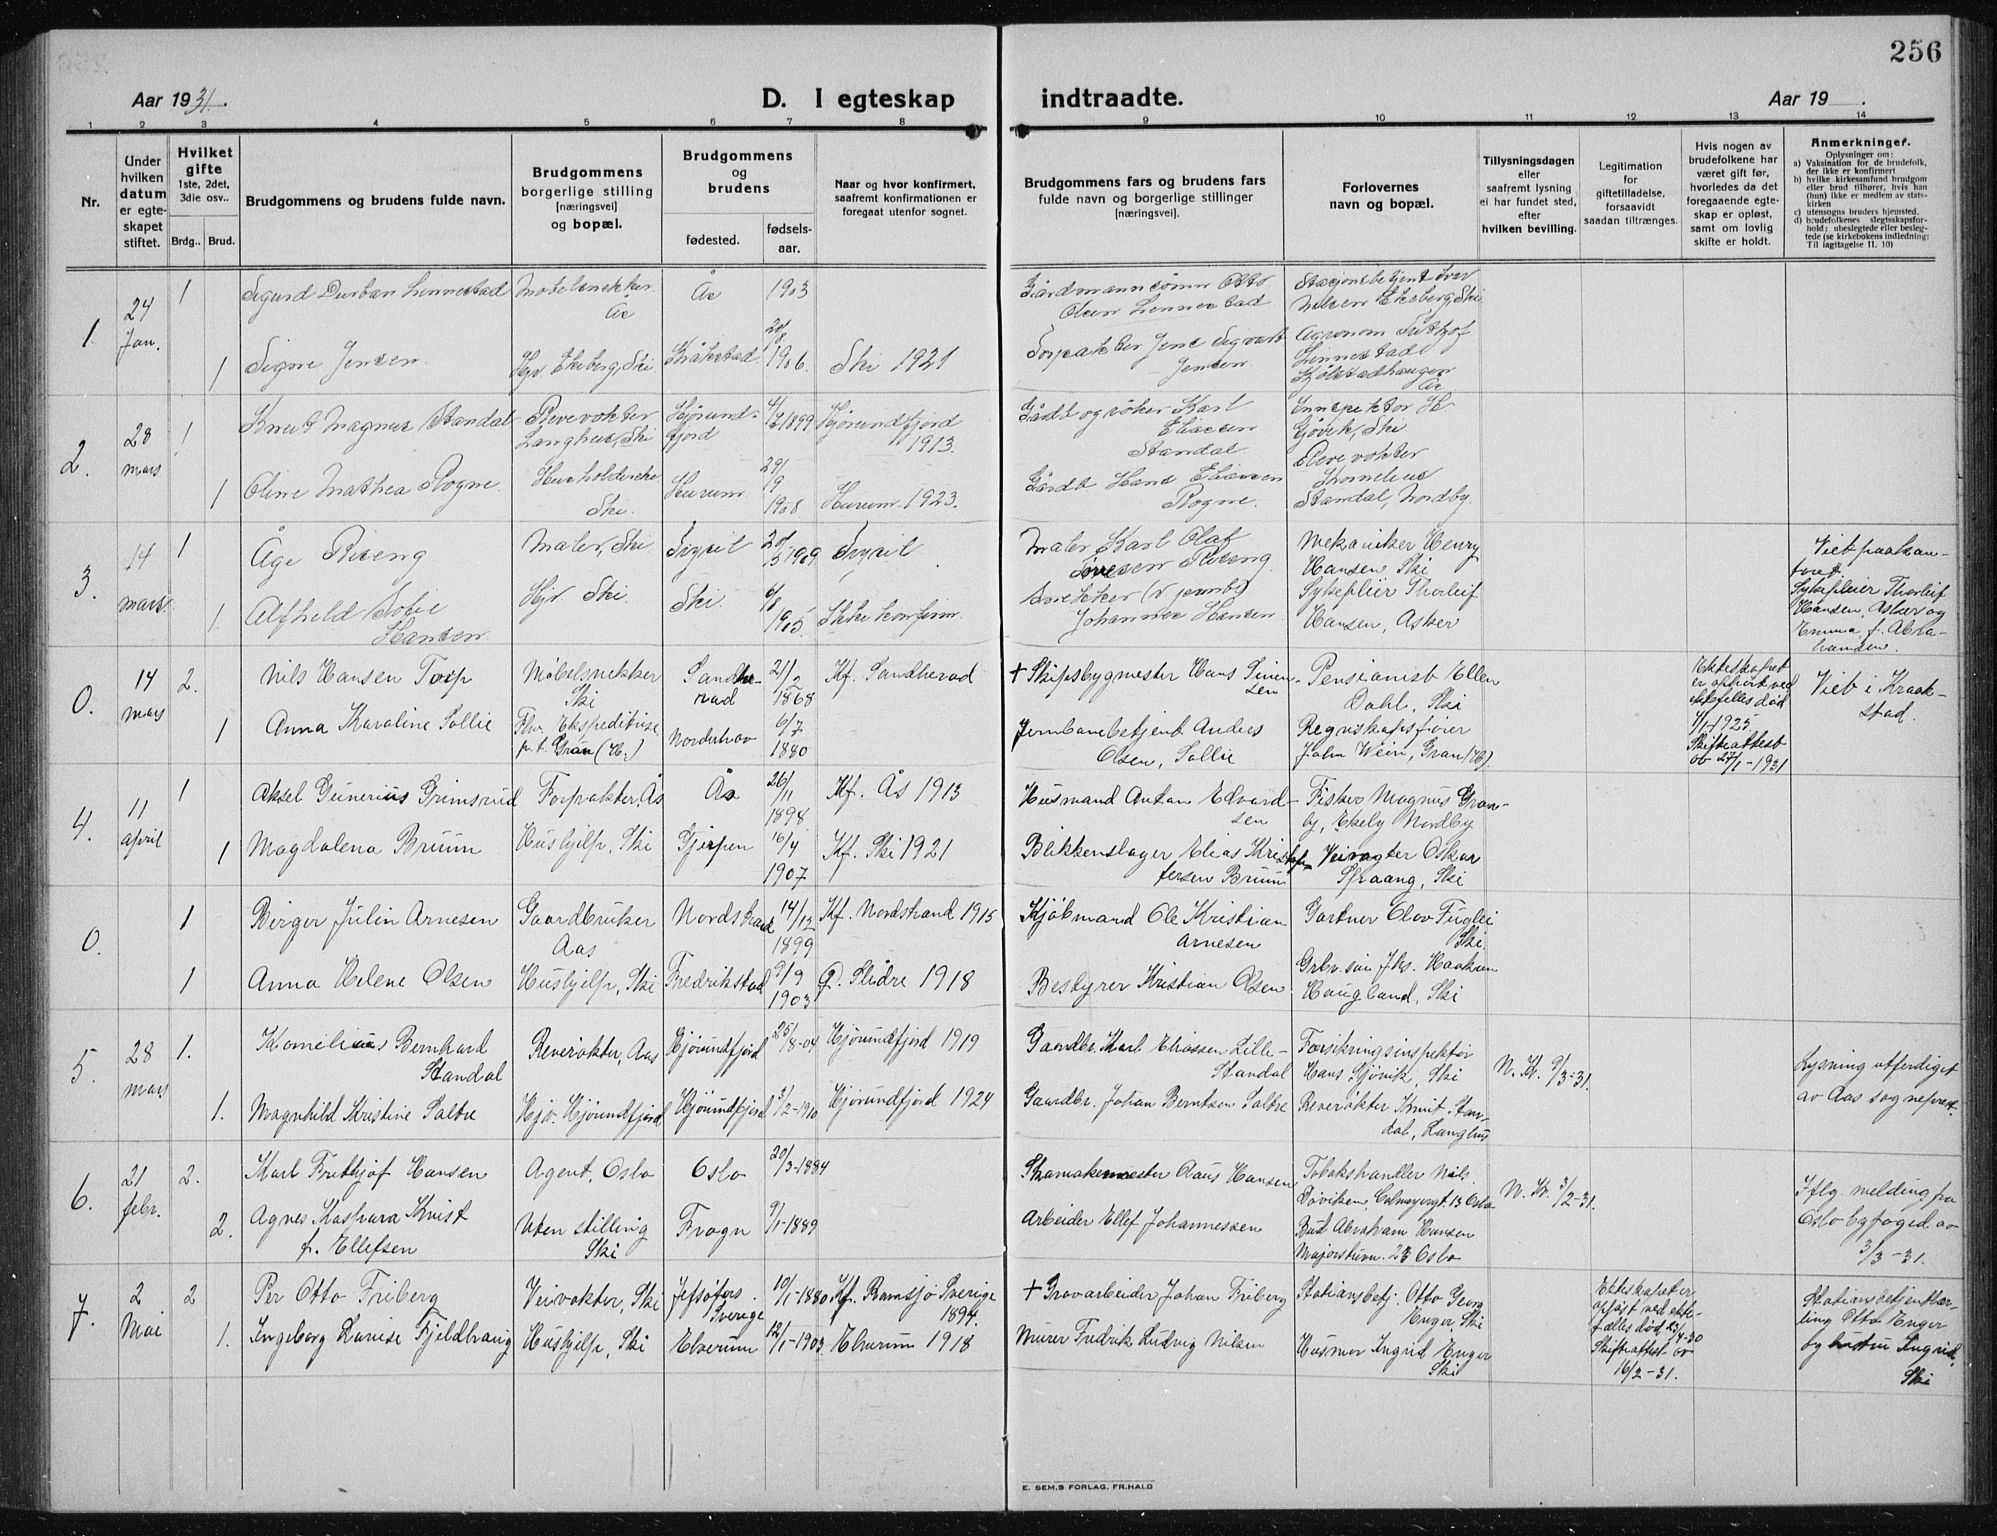 256
Aar 1931.
D. I egteskap
indtraadte.
Aar 19
1 2 3 4 5 6 7 8 9 10 11 12 13 14
Nr.
Under hvilken datum er egteskapet stiftet.
Hvilket gifte 1ste, 2det, 3die osv..
Brdg.. Brud.
Brudgommens og brudens fulde navn.
Brudgommens borgerlige stilling [næringsvei] og bopæl.
Brudgommens og brudens
fødested.
fødselsaar.
Naar og hvor konfirmert, saafremt konfirmationen er foregaat utenfor sognet.
Brudgommens fars og brudens fars fulde navn og borgerlige stillinger [næringsvei].
Forlovernes navn og bopæl.
Tillysningsdagen eller saafremt lysning ei har fundet sted, efter hvilken bevilling.
Legitimation for giftetilladelse, forsaavidt saadan tiltrænges.
Hvis nogen av brudefolkene har været gift før, hvorledes da det foregaaende egteskap er opløst, samt om lovlig skifte er holdt.
Anmerkninger.
Oplysninger om:
a) Vaksination for de brudefolk, der ikke er konfirmert
b) hvilke kirkesamfund brudgom eller brud tilhører, hvis han (hun) ikke er medlem av statskirken
c) utensogns bruders hjemsted.
d) brudefolkenes slegtsskapsforhold: ubeslegtede eller beslegtede (se kirkebokens indledning: Til iagttagelse II. 10)
1. 24 Jan. 1
Sigurd Durban Lennestad
Møbelsnekker Ås
Ås
1903
Gårdmannssønn Otto Olsen Lennestad
Stasjonsbetjent Ivar Nilsen Ekeberg, Ski
1
Signe Jensen
Hjv. Ekeberg, Ski
Kråkstad
20/8 1906
Ski 1921
Forpakter Jens Sigvart Jensen
Agronom Fritjof Lennestad Kjølstadhaugen Ås
2. 28 mars 1
Knut Magnus Standal
Revevokter Langhus, Ski
Hjørundfjord
1899
Hjørundfjord 1913.
Karl Eliassen Standal
H. Gjøvik, Ski
1
Oline Mathea Rogne
Husholderske Ski.
Hurum
29/9 1908
Hurum 1923.
Gårdb. Hans Eliassen Rogne.
Revevokter Kornelius Standal, Nordby.
3. 14 mars 1
Åge Riseng
Maler, Ski
Trysil
20/5 1909
Trysil
Maler Karl Olaf Riseng
Mekaniker Henry Hansen Ski
1
Alfhild Sofie Hansen
Hjv. Ski
Ski.
1905
Ikke konfirm.
Johannes Hansen
Sykepleier Thorleif Hansen, Asker
Sykepleier Thorleif Hansen, Asker og Emma, f. Abrahamsen.
0. 14 mars 2.
Nils Hansen Torp
Møbelsnekker Ski
Sandherad
21/2 1868
Kf. Sandherad
+ Skipsbygmester Hans Simensen
Pensionist Ellen Dahl, Ski
Ekteskapet er opløst ved ektefelles død 1925. Skifteattest 27/1-1931
Viet i Kraakstad.
1
Anna Karoline Sollie
Fhv. Ekspeditrise p.t. Gran (H.)
Norderhov
6/7 1880
Jernbanebetjent Anders Olsen, Sollie
Regnskapsfører John Wein, Gran (H).
4. 11 april 1
Aksel Gunerius Grimsrud
Forpakter, Ås
Ås
26/11 1898
Kf. Ås 1913
Husmand Anton Edvardsen
Fisker Magnus Granby, Ekely Nordby
1
Magdalena Bruun
Hushjelp, Ski
Gjerpen
16/4 1907
Kf. Ski 1921
Blikkenslager Elias Kristofersen Bruun
Veivogter Oskar Spraang, Ski
0. 1
Birger Julin Arnesen
Gaardbruker Aas
Nordstrand
14/12 1899
Kf. Nordstrand 1915
Kjøbmand Ole Kristian Arnesen
Gartner Olov Fuglei Ski.
1
Anna Helene Olsen
Hushjelp, Ski
Fredrikstad
9/9 1903
Ø. Slidre 1918
Bestyrer Kristian Olsen
Haakon Haugland, Ski
5. 28 mars 1.
Kornelius Bernhard Standal
Revevokter, Aas
Hjørundfjord
25/8-04
Hjørundfjord 1919
Gaardbr. Karl Eliassen Lille-Standal
Forsikringsinspektør Hans Gjøvik, Ski
N. K. 9/3-31.
Lysning utferdiget av Aas sogneprest.
1.
Magnhild Kristine Salbu
Hjv. Hjørundfjord
Hjørundfjord
3/2-1910
Hjørundfjord 1924
Gaardbr. Johan Berntsen Salbu
Revevokter Knut Standal, Langhus
6. 21 febr. 2.
Karl Fritthjof Hansen
Agent, Oslo
Oslo
20/3-1884
Skomakermester Aaus Hansen
Tobakshandler Nils Døviken, Calmeyergt. 13 Oslo
N. K. 3/2-31.
Iflg. melding fra Oslo byfoged av 3/3-31.
2.
Agnes Kaspara Kvist f. Ellefsen
Uten stilling Ski
Frogn
9/1-1889
Arbeider Ellef Johannessen
Bud Abraham Hansen Majorstuvn. 23 Oslo
7. 2 Mai 2
Per Otto Friberg
Veivokter, Ski
Sverige
10/1-1880
Kf. Ramsjø Sverige 1894.
+ Grovarbeider Johan Friberg
Stationsbetj. Otto Georg Enger, Ski
Ekteskapet er opløst ved ektefælles død 23/4-30 Skifteattest av 16/2-31.
Stationsbetjent Otto Enger og hustru Ingrid, Ski
1.
Ingeborg Lovise Fjeldhaug
Hushjelp, Ski
Elverum
12/1-1903.
Elverum 1918
Murer Fredrik Ludvig Nilsen
Husmor Ingrid Enger Ski
E. SEM.S FORLAG, FR.HALD